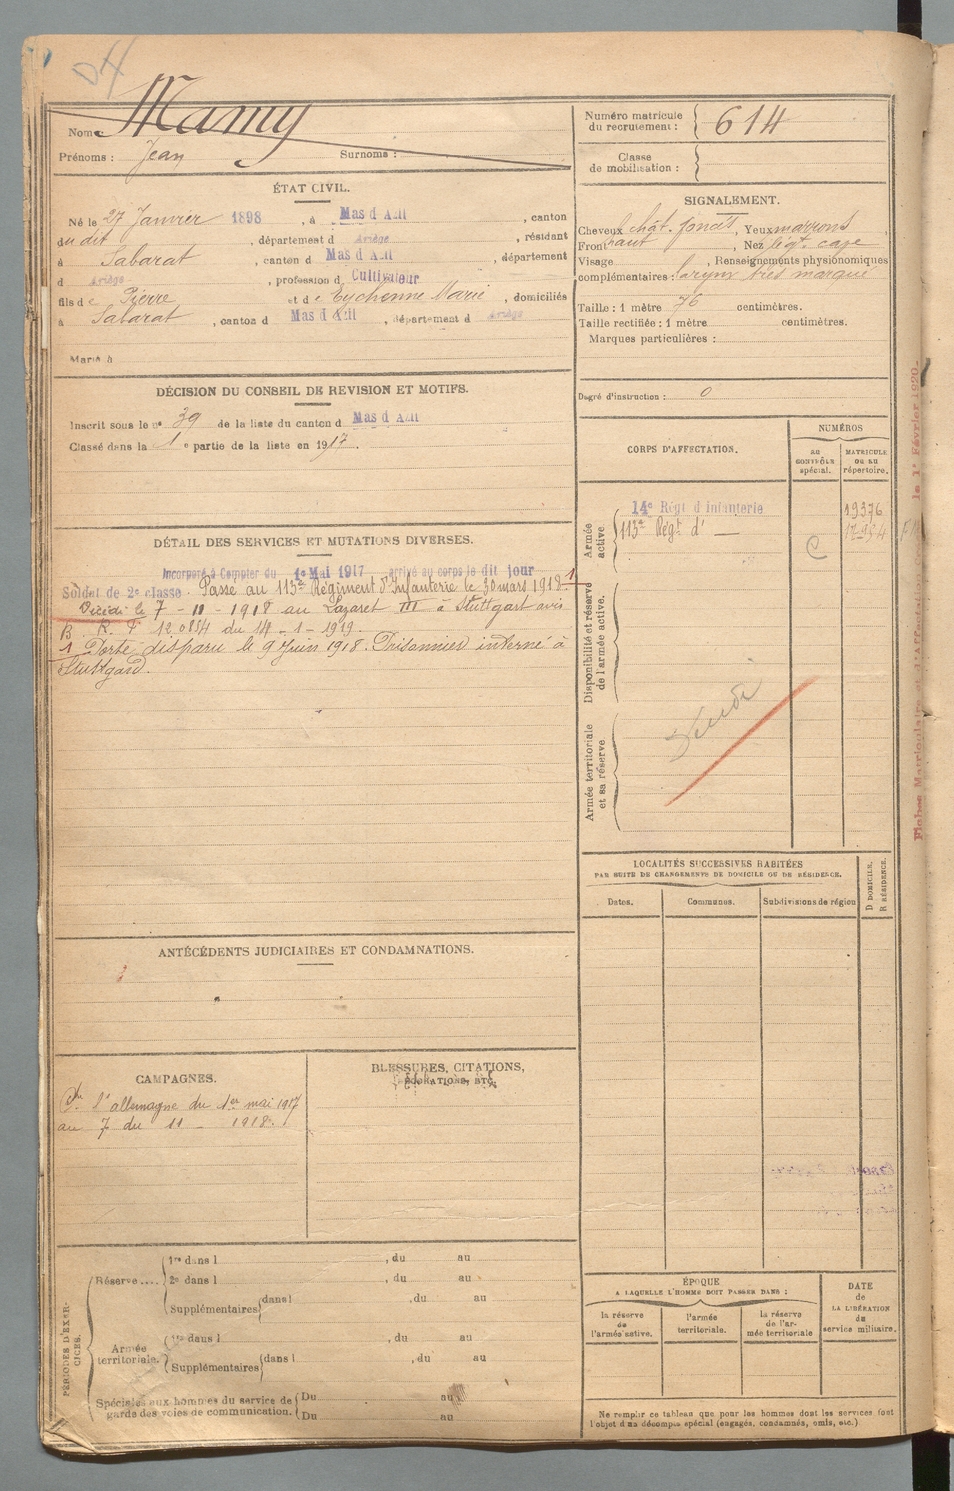 Nom : Mamy
Prénoms : Jean Surnoms :
Numéro matricule
du recrutement : 614
Classe
de mobilisation :
ÉTAT CIVIL.
Né le 27 Janvier 1898, à Mas d Azil, canton
du dit, département d Ariège, résidant
à Sabarat, canton d Mas d Azil, département
d Ariège, profession d Cultivateur
fils de Pierre et de Eychenne Marie, domiciliés
à Sabarat, canton d Mas d Azil, département d Ariège
Marié à
SIGNALEMENT.
Cheveux chât. foncés, Yeux marrons,
Front haut, Nez
Visage, Renseignements physionomiques
complémentaires : larynx très marqué
Taille : 1 mètre 76 centimètres.
Taille rectifiée : 1 mètre centimètres.
Marques particulières :
Degré d'instruction : 0
DÉCISION DU CONSEIL DE REVISION ET MOTIFS.
Inscrit sous le no 39 de la liste du canton d Mas d Azil
Classé dans la 1e partie de la liste en 1917.
DÉTAIL DES SERVICES ET MUTATIONS DIVERSES.
Incorporé à Compter du 1e Mai 1917 arrivé au corps le dit jour
Soldat de 2e classe. Passé au 113e Régiment d'Infanterie le 30 mars 1918 1
Décédé le 7 - 11 - 1918 au Lazaret III à Stuttgart avis
B. R. F 12.0854 du 14 - 1 - 1919.
1 Porté disparu le 9 Juin 1918. Prisonnier interné à
Stuttgard.
CORPS D'AFFECTATION.
NUMÉROS
au
CONTRÔLE
spécial.
MATRICULE
ou au
répertoire.
Armée
active
14e Régt d infanterie 19376
113e Régt d' —
C
Disponibilité et réserve
de l'armée active.
Armée territoriale
et sa réserve
LOCALITÉS SUCCESSIVES HABITÉES
PAR SUITE DE CHANGEMENTS DE DOMICILE OU DE RÉSIDENCE.
Dates. Communes. Subdivisions de région
D DOMICILE.
R RÉSIDENCE.
ANTÉCÉDENTS JUDICIAIRES ET CONDAMNATIONS.
CAMPAGNES.
l'allemagne du 1er mai 1917
au 7 du 11 - 1918.
BLESSURES, CITATIONS,
DÉCORATIONS, ETC.
PÉRIODES D'EXERCICES.
Réserve....
1re dans l , du au
2e dans l , du au
Supplémentaires dans l , du au
Armée
territoriale.
1re dans l , du au
Supplémentaires dans l , du au
Spéciales aux hommes du service de
garde des voies de communication.
Du au
Du au
ÉPOQUE
A LAQUELLE L'HOMME DOIT PASSER DANS :
la réserve
de
l'armée active.
l'armée
territoriale.
la réserve
de l'ar-
mée territoriale
DATE
de
LA LIBÉRATION
du
service militaire.
Ne remplir ce tableau que pour les hommes dont les services font
l'objet d'un décompte spécial (engagés, condamnés, omis, etc.)